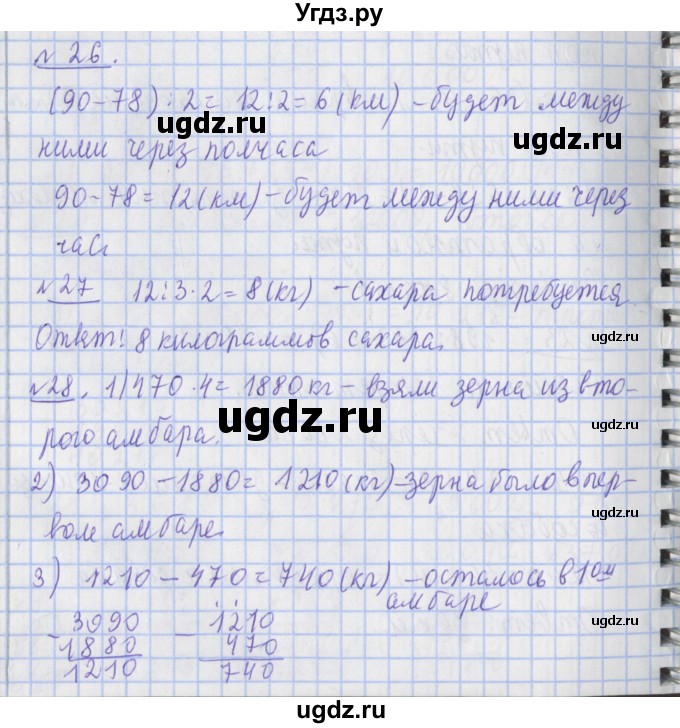 Угдз.ру
№ 26.
(90-78):2= 12:2=6(км) -будет между
ugdz.ru
ugdz.ru
ними через полчаса
90-78= 12(км)-будет между ними через
час
№27 12:3·2=8(кг) -сахара потребуется
ugdz.ru
Ответ: 8 килограммов сахара.
№28. 1)470·4= 1880кг- взяли зерна из вто-
ugdz.ru
рого амбара.
2) 3090-1880= 1210(кг)-зерна было в пер-
ugdz.ru
вом амбаре.
3) 1210-470=740(кг) -осталось в 1ом
амбаре
ugdz.ru
- 3090 - 1210
1880 470
1210 740
ugdz.ru
ugdz.ru